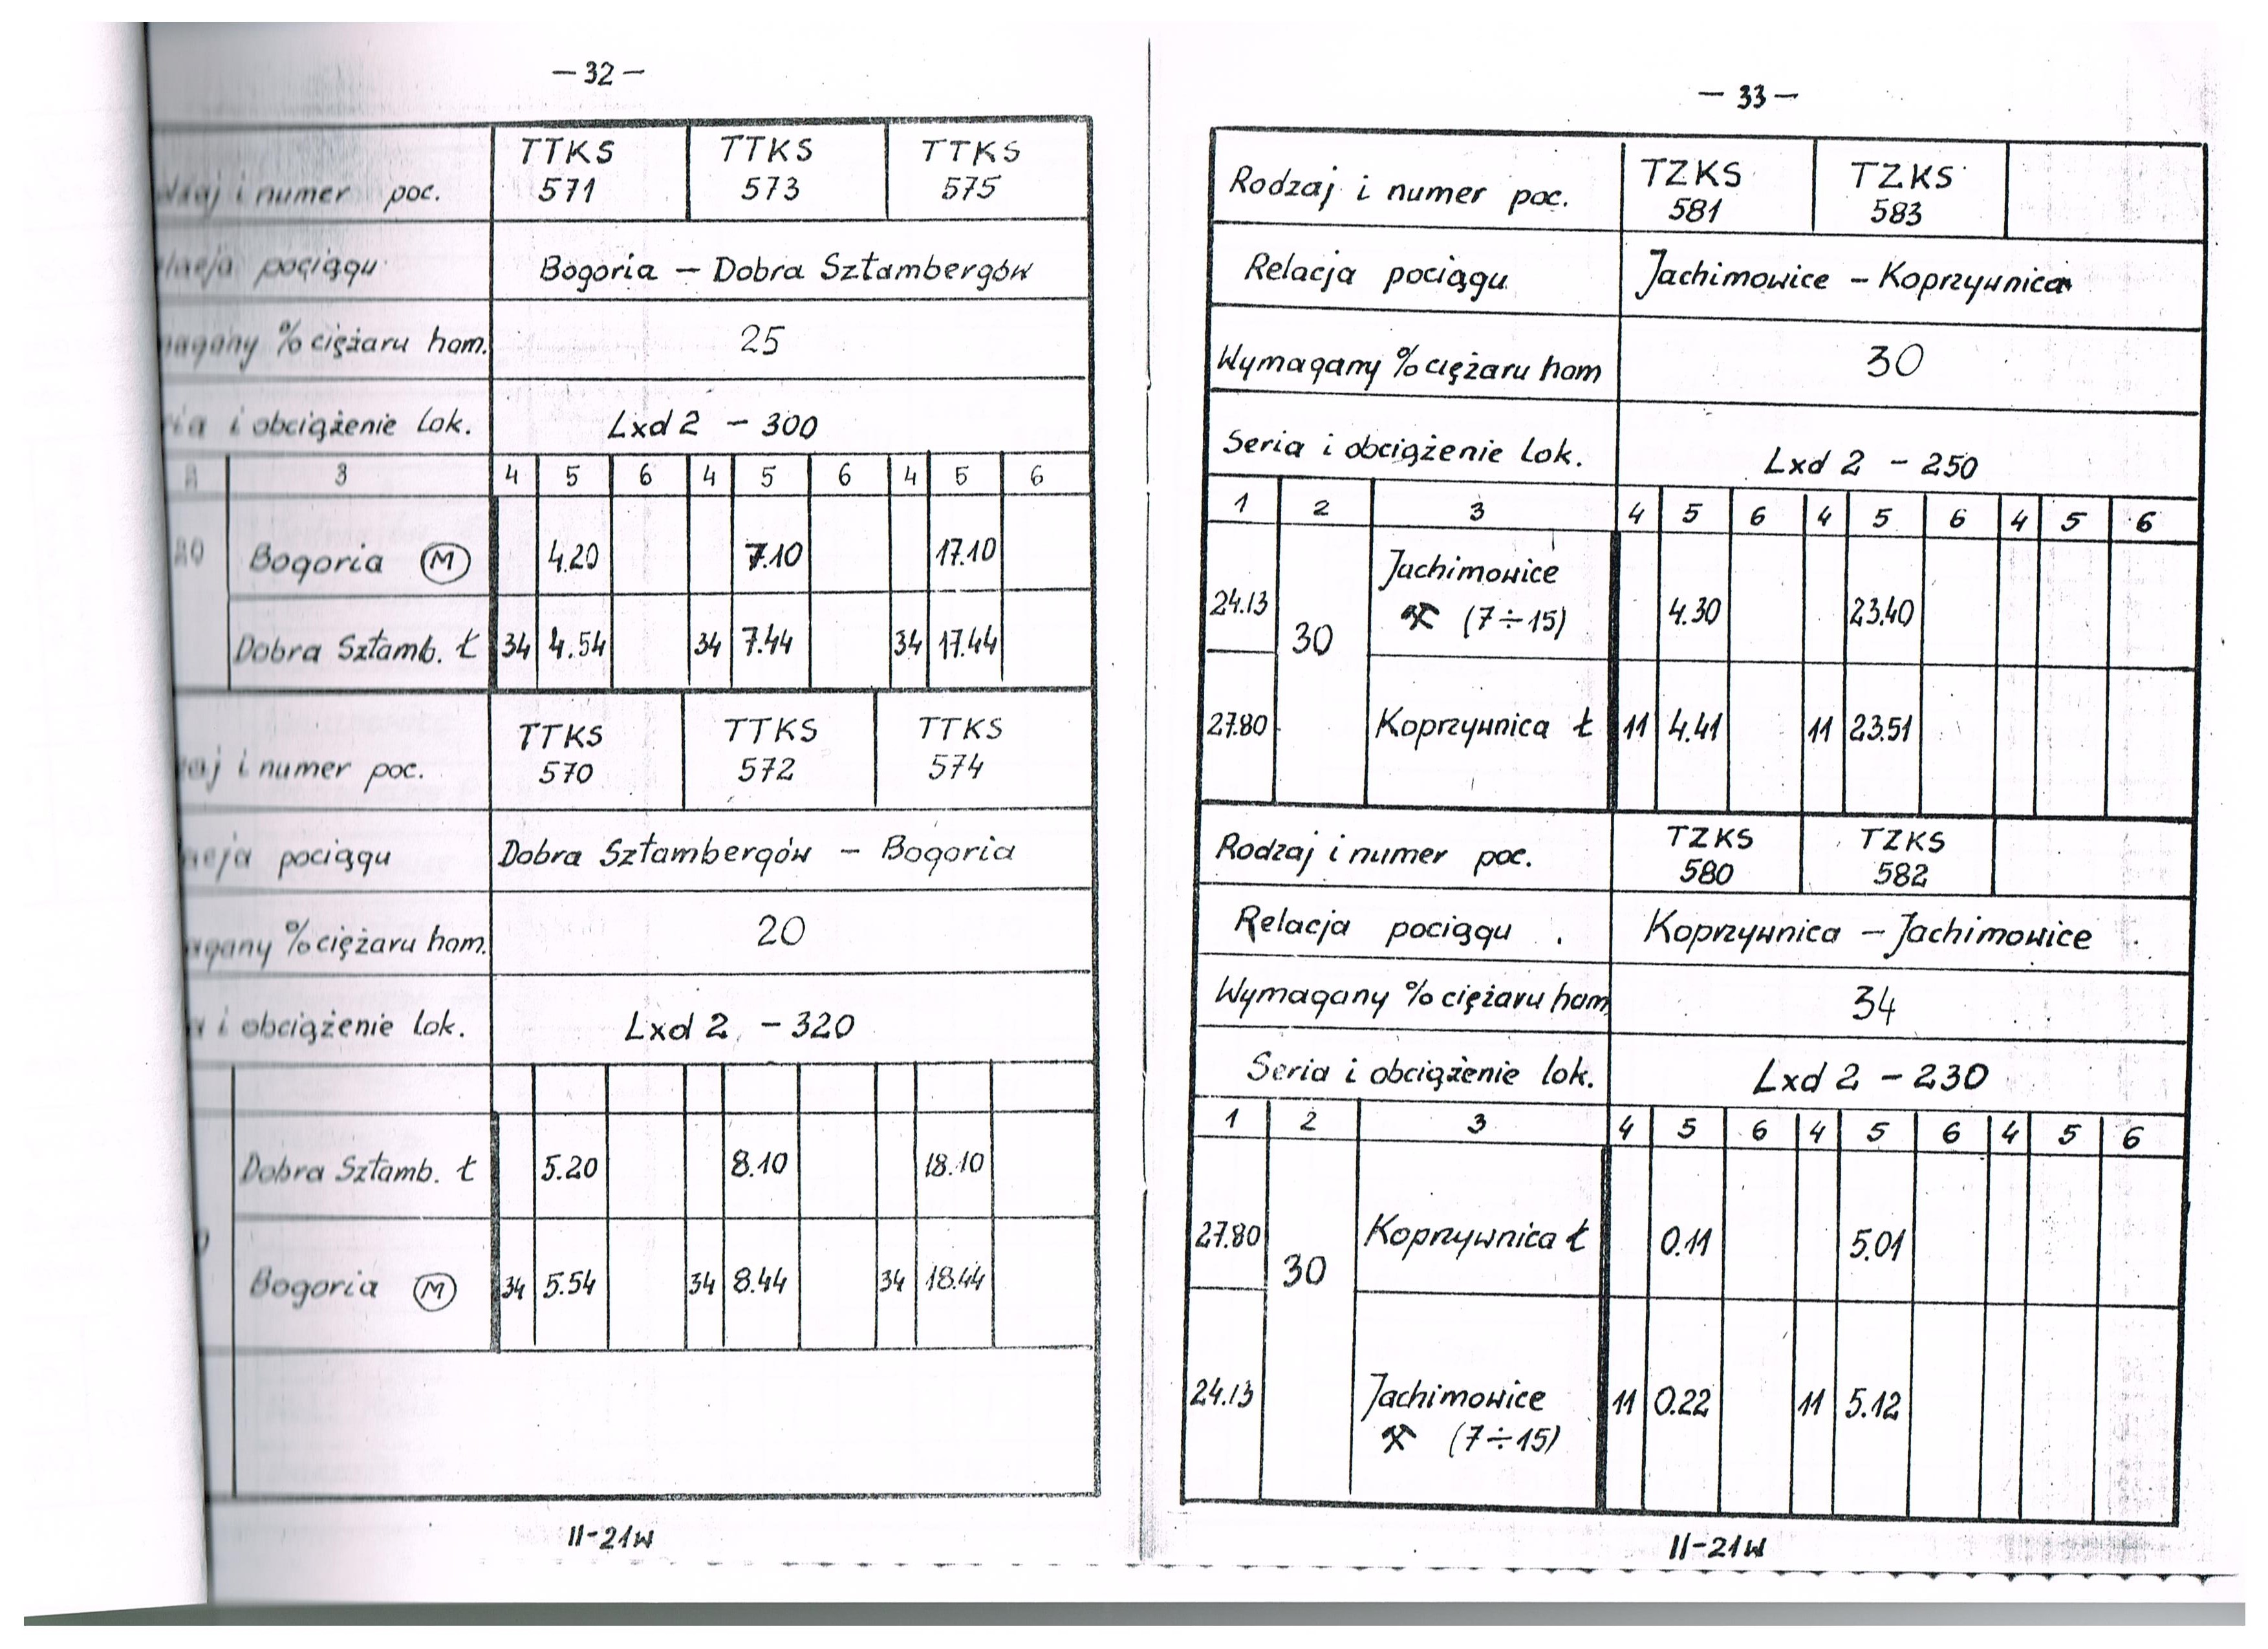 – 32 –
TTKS TTKS TTKS
i numer poc. 571 573 575
pociągu Bogoria – Dobra Sztambergów
% ciężaru ham. 25
i obciążenie lok. Lxd 2 – 300
3 4 5 6 4 5 6 4 5 6
Bogoria M 4.20 7.10 17.10
Dobra Sztamb. Ł 34 4.54 34 7.44 34 17.44
TTKS TTKS TTKS
i numer poc. 570 572 574
pociągu Dobra Sztambergów – Bogoria
% ciężaru ham. 20
i obciążenie lok. Lxd 2 – 320
Dobra Sztamb. Ł 5.20 8.10 18.10
Bogoria M 34 5.54 34 8.44 34 18.44
II-21w
– 33 –
TZKS TZKS
Rodzaj i numer poc. 581 583
Relacja pociągu Jachimowice – Koprzywnica
Wymagany % ciężaru ham 30
Seria i obciążenie lok. Lxd 2 – 250
1 2 3 4 5 6 4 5 6 4 5 6
24.13 30 Jachimowice ⚒ (7÷15) 4.30 23.40
27.80 Koprzywnica Ł 11 4.41 11 23.51
TZKS TZKS
Rodzaj i numer poc. 580 582
Relacja pociągu Koprzywnica – Jachimowice
Wymagany % ciężaru ham 34
Seria i obciążenie lok. Lxd 2 – 230
1 2 3 4 5 6 4 5 6 4 5 6
27.80 30 Koprzywnica Ł 0.11 5.01
24.13 Jachimowice ⚒ (7÷15) 11 0.22 11 5.12
II-21w